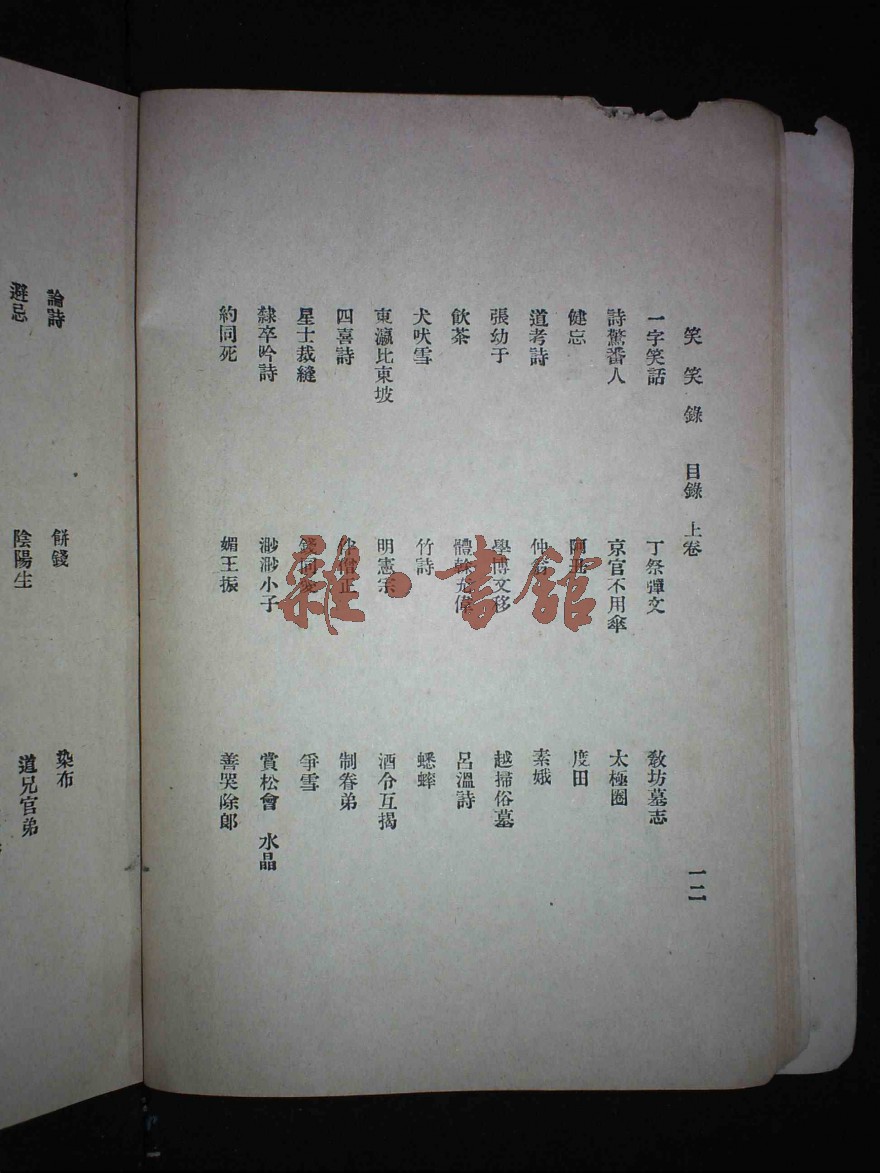 笑笑錄 目錄 上卷 一二
一字笑話 丁祭彈文 敎坊墓志
詩驚番人 京官不用傘 太極圈
健忘 度田
道考詩 素娥
張幼于 學博文移 越掃俗墓
飲茶 呂溫詩
犬吠雪 竹詩 蟋蟀
東瀛比東坡 明憲宗 酒令互揭
四喜詩 僧正 制眷弟
星士裁縫 爭雪
隸卒吟詩 渺渺小子 賞松會 水晶
約同死 媚王振 善哭除郞
論詩 餅錢 染布
避忌 陰陽生 道兄官弟
雜·書館